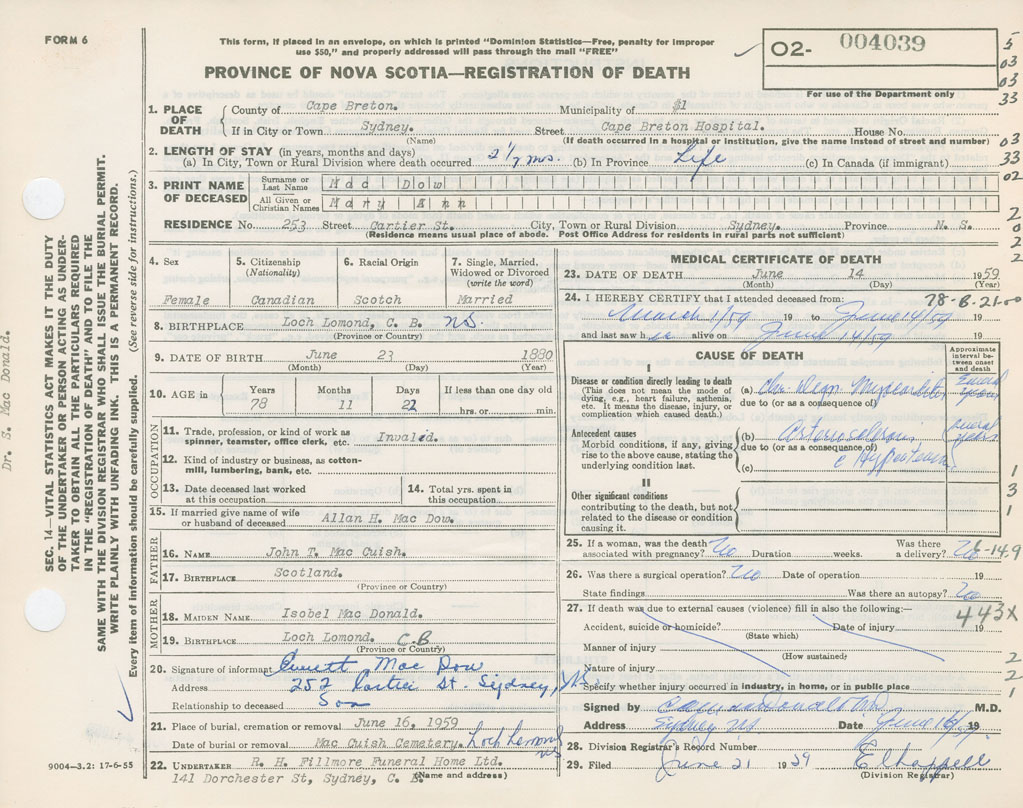 FORM 6
This form, if placed in an envelope, on which is printed "Dominion Statistics—Free, penalty for improper
use $50," and properly addressed will pass through the mail "FREE"
02- 004039
For use of the Department only
PROVINCE OF NOVA SCOTIA—REGISTRATION OF DEATH
5
03
03
33
03
33
02
2
0
2
2
1. PLACE OF DEATH County of Cape Breton. Municipality of #1
If in City or Town Sydney. Street Cape Breton Hospital. House No.
(Name) (If death occurred in a hospital or institution, give the name instead of street and number)
2. LENGTH OF STAY (in years, months and days)
(a) In City, Town or Rural Division where death occurred mos. (b) In Province Life (c) In Canada (if immigrant)
3. PRINT NAME OF DECEASED
Surname or Last Name Mac Dow
All Given or Christian Names Mary Ann
RESIDENCE No. 253 Street Cartier St. City, Town or Rural Division Sydney. Province N. S.
(Residence means usual place of abode. Post Office Address for residents in rural parts not sufficient)
4. Sex
Female
5. Citizenship
(Nationality)
Canadian
6. Racial Origin
Scotch
7. Single, Married,
Widowed or Divorced
(write the word)
Married
8. BIRTHPLACE Loch Lomond, C. B. NS.
(Province or Country)
9. DATE OF BIRTH June 23 1880
(Month) (Day) (Year)
10. AGE in
Years Months Days If less than one day old
78 11 22 hrs. or min.
OCCUPATION
11. Trade, profession, or kind of work as
spinner, teamster, office clerk, etc. Invalid.
12. Kind of industry or business, as cotton-
mill, lumbering, bank, etc.
13. Date deceased last worked
at this occupation
14. Total yrs. spent in
this occupation
15. If married give name of wife
or husband of deceased Allan H. Mac Dow.
FATHER
16. NAME John T. Mac Cuish.
17. BIRTHPLACE Scotland.
(Province or Country)
MOTHER
18. MAIDEN NAME Isobel Mac Donald.
19. BIRTHPLACE Loch Lomond. C.B
(Province or Country)
20. Signature of informant Everett Mac Dow
Address 252 Cartier St. Sydney, N.S.
Relationship to deceased Son
21. Place of burial, cremation or removal June 16, 1959
Date of burial or removal Mac Cuish Cemetery. Loch Lomond NS
22. UNDERTAKER R. H. Fillmore Funeral Home Ltd.
141 Dorchester St, Sydney, C. B.
(Name and address)
MEDICAL CERTIFICATE OF DEATH
23. DATE OF DEATH June 14 1959
(Month) (Day) (Year)
24. I HEREBY CERTIFY that I attended deceased from: 78-B-21-00
March 1/59 19 to June 14/59 19
and last saw h alive on June 14/59 19
CAUSE OF DEATH
Approximate
interval be-
tween onset
and death
I
Disease or condition directly leading to death
(This does not mean the mode of
dying, e.g., heart failure, asthenia,
etc. It means the disease, injury, or
complication which caused death.)
(a)
due to (or as a consequence of)
Several years
Antecedent causes
Morbid conditions, if any, giving
rise to the above cause, stating the
underlying condition last.
(b)
due to (or as a consequence of)
(c)
Several years
1
3
1
II
Other significant conditions
contributing to the death, but not
related to the disease or condition
causing it.
25. If a woman, was the death
associated with pregnancy? No Duration weeks.
Was there
a delivery? No
26. Was there a surgical operation? No Date of operation 19
State findings Was there an autopsy? No
27. If death was due to external causes (violence) fill in also the following:— 443X
Accident, suicide or homicide? Date of injury 19
(State which)
Manner of injury
(How sustained)
2
Nature of injury
2
Specify whether injury occurred in industry, in home, or in public place
1
Signed by M.D.
Address Sydney NS Date June 16/59 19
28. Division Registrar's Record Number
29. Filed June 21 1959
(Division Registrar)
SEC. 14—VITAL STATISTICS ACT MAKES IT THE DUTY
OF THE UNDERTAKER OR PERSON ACTING AS UNDER-
TAKER TO OBTAIN ALL THE PARTICULARS REQUIRED
IN THE "REGISTRATION OF DEATH" AND TO FILE THE
SAME WITH THE DIVISION REGISTRAR WHO SHALL ISSUE THE BURIAL PERMIT.
WRITE PLAINLY WITH UNFADING INK. THIS IS A PERMANENT RECORD.
Every item of information should be carefully supplied. (See reverse side for instructions.)
Dr. S. Mac Donald.
9004—3.2: 17-6-55